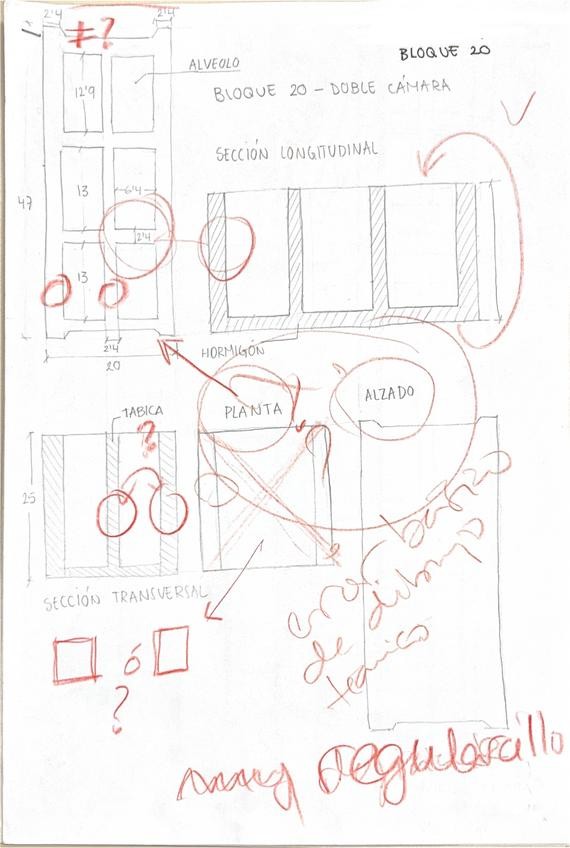 2'4 2'4
≠?
BLOQUE 20
ALVEOLO
BLOQUE 20 - DOBLE CÁMARA
12'9
SECCIÓN LONGITUDINAL
13
6'4
47
2'4
13
2'4
20
HORMIGÓN
TABICA
PLANTA
ALZADO
?
25
SECCIÓN TRANSVERSAL
error básico
de dibujo
técnico
ó
?
muy regularcillo